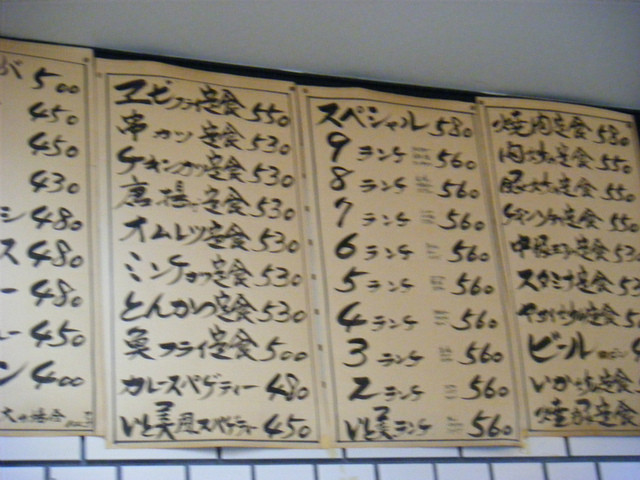 バ 500
450
450
430
シ 480
ス 480
ー 480
ュー 450
ン 400
エビフライ定食 550
串カツ定食 530
チキンカツ定食 530
唐揚定食 530
オムレツ定食 530
ミンチカツ定食 530
とんかつ定食 530
魚フライ定食 500
カレースパゲティー 480
いと美風スパゲティー 450
スペシャル 580
9ランチ 560
8ランチ 560
7ランチ 560
6ランチ 560
5ランチ 560
4ランチ 560
3ランチ 560
2ランチ 560
いと美ランチ 560
焼肉定食 580
肉 定食 550
豚 定食 550
チキン 定食 550
定食 530
スタミナ定食 53
定食
ビール
いか 定食
焼 定食